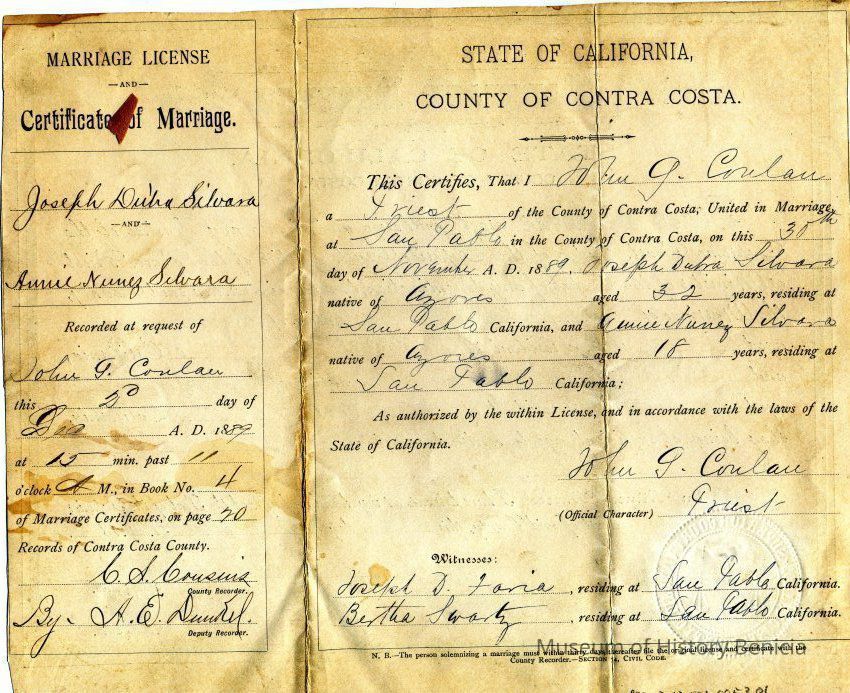 MARRIAGE LICENSE
—AND—
Certificate of Marriage.
Joseph Dutra Silvara
—AND—
Annie Nunez Silvara
Recorded at request of
John G. Conlan
this 2d day of
Dec A. D. 1889
at 15 min. past 11
o'clock A M., in Book No. 4
of Marriage Certificates, on page 70
Records of Contra Costa County.
C. S. Cousins
County Recorder.
By- A. E. Dunkel.
Deputy Recorder.
STATE OF CALIFORNIA,
COUNTY OF CONTRA COSTA.
This Certifies, That I John G. Conlan
a Priest of the County of Contra Costa, United in Marriage,
at San Pablo in the County of Contra Costa, on this 30th
day of November A. D. 1889. Joseph Dutra Silvara
native of Azores aged 32 years, residing at
San Pablo California, and Annie Nunez Silvara
native of Azores aged 18 years, residing at
San Pablo California;
As authorized by the within License, and in accordance with the laws of the
State of California.
John G. Conlan
(Official Character) Priest
Witnesses:
Joseph D. Faria, residing at San Pablo California.
Bertha Swartz, residing at San Pablo California.
N. B.—The person solemnizing a marriage must within thirty days thereafter file the original license and certificate with the
County Recorder.—SECTION 74, CIVIL CODE.
Museum of History Benicia